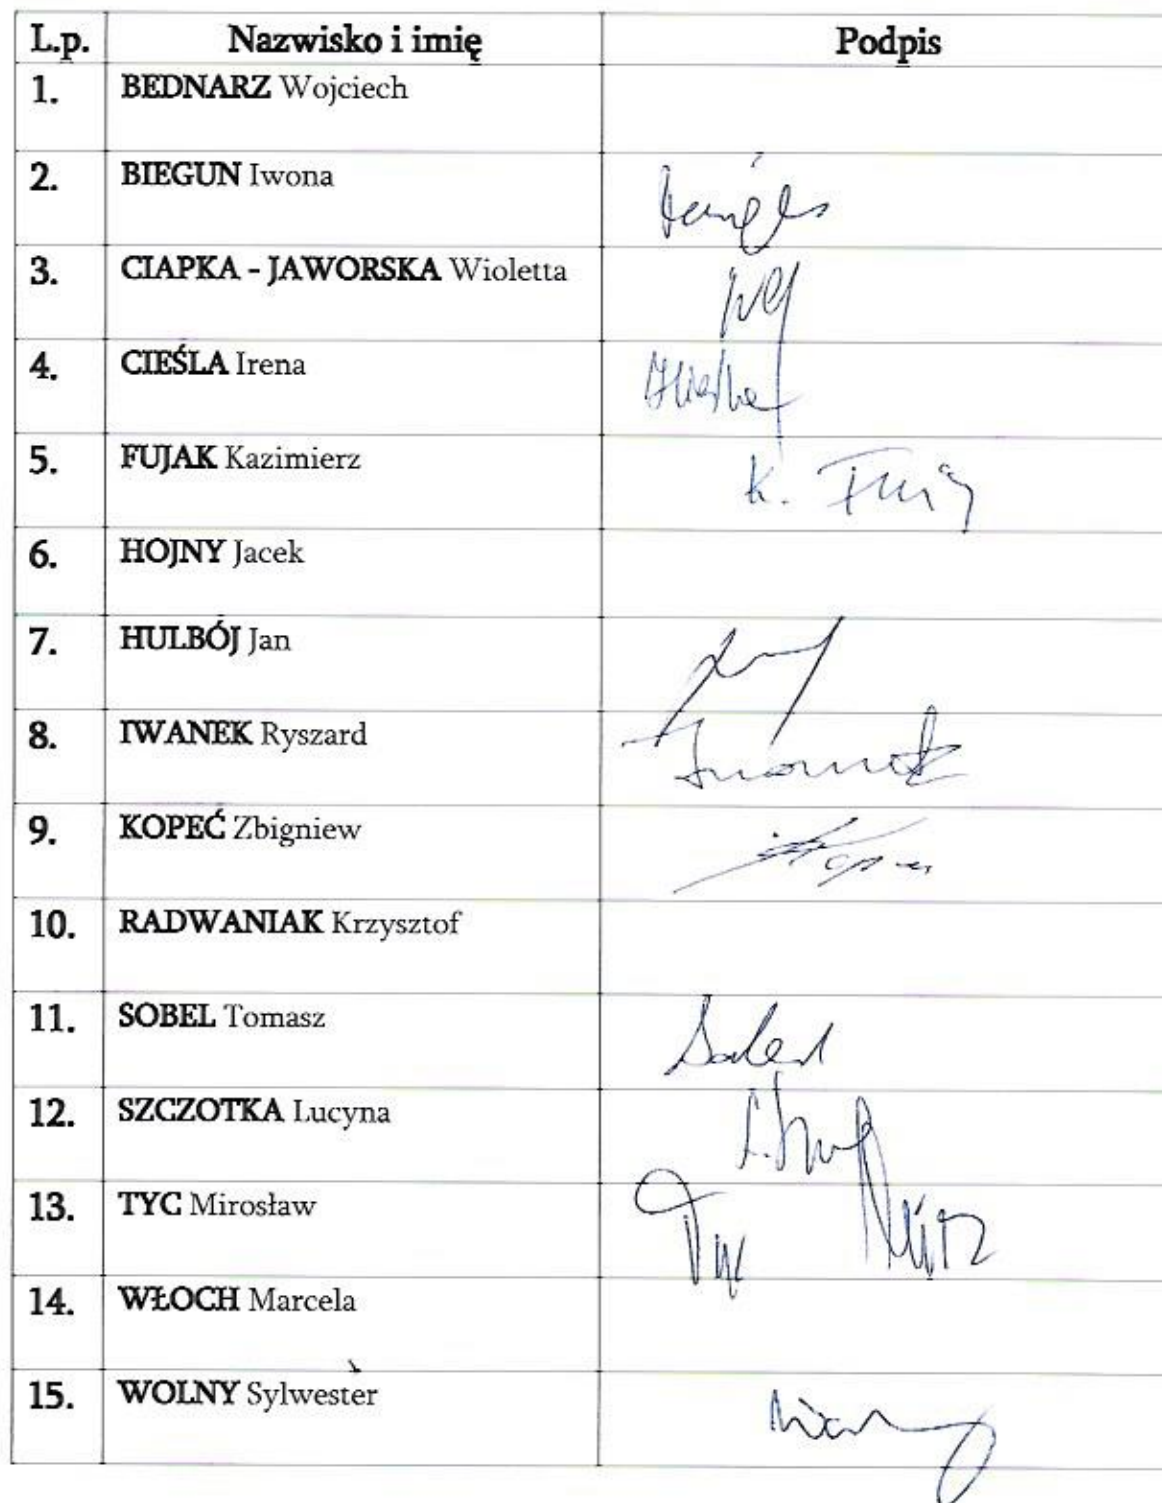 L.p. Nazwisko i imię Podpis
1. BEDNARZ Wojciech
2. BIEGUN Iwona
3. CIAPKA - JAWORSKA Wioletta
4. CIEŚLA Irena
5. FUJAK Kazimierz K.
6. HOJNY Jacek
7. HULBÓJ Jan
8. IWANEK Ryszard
9. KOPEĆ Zbigniew
10. RADWANIAK Krzysztof
11. SOBEL Tomasz
12. SZCZOTKA Lucyna
13. TYC Mirosław
14. WŁOCH Marcela
15. WOLNY Sylwester